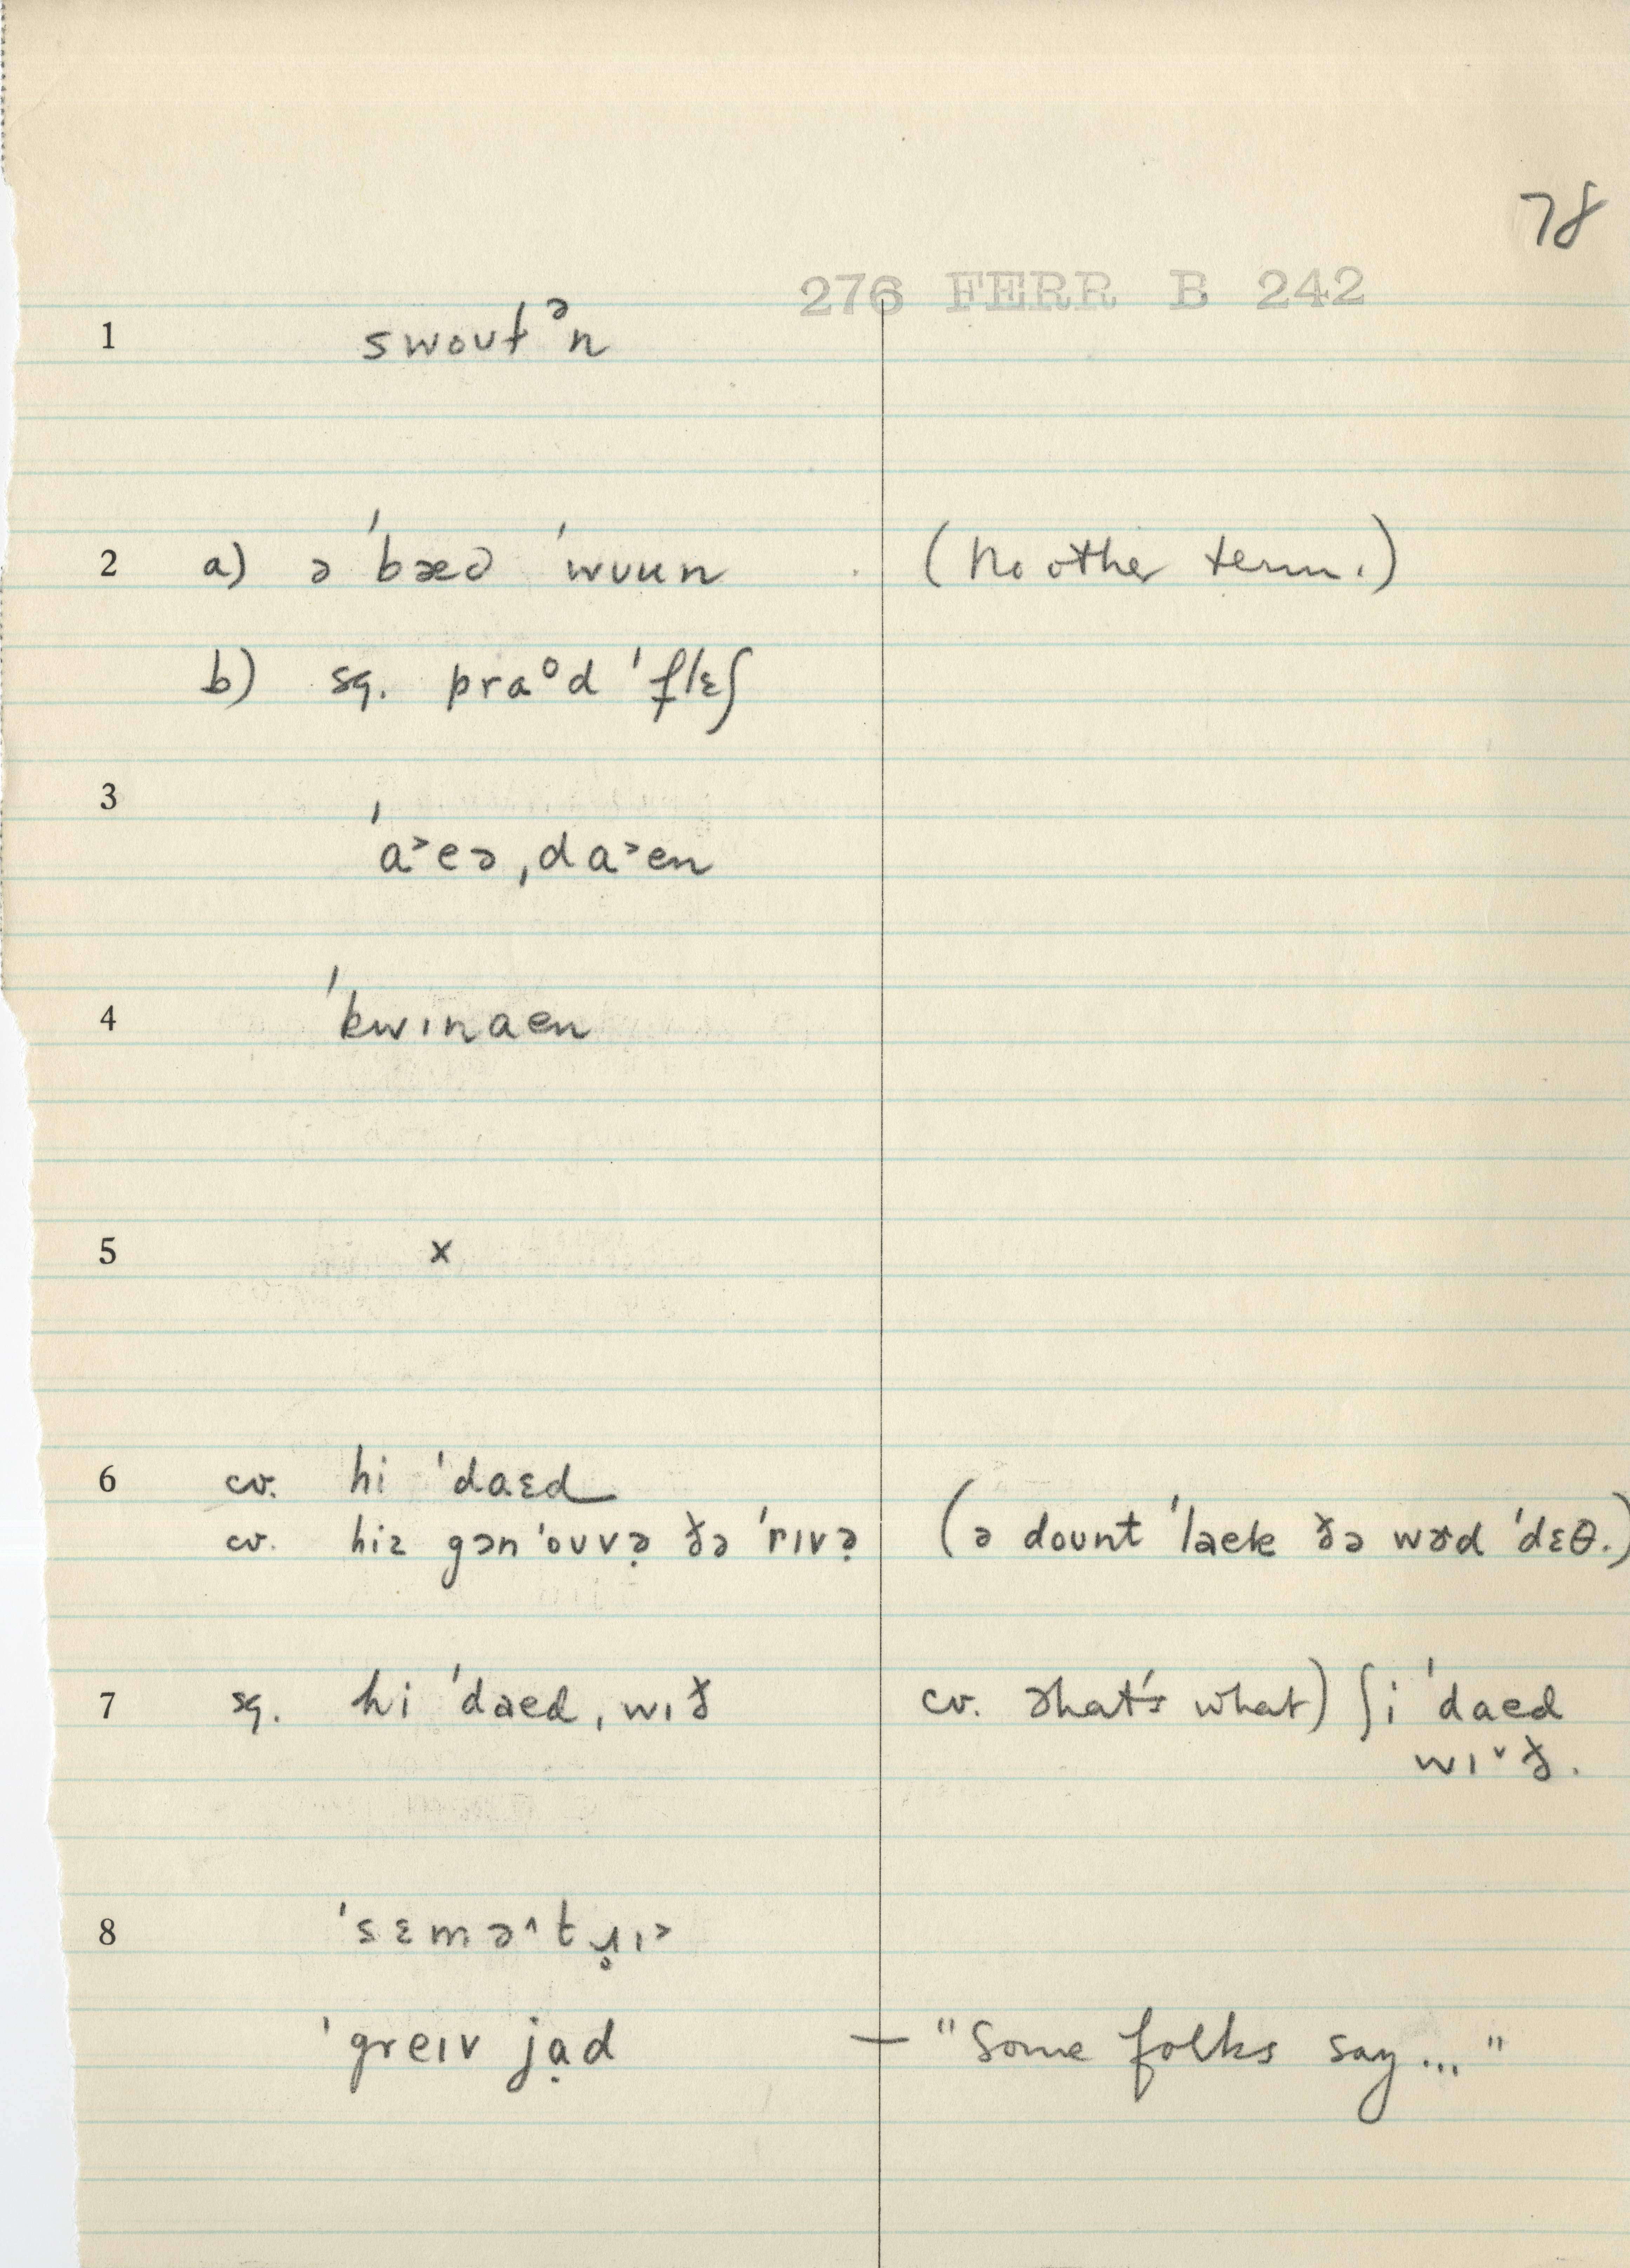 78
276 FERR B 242
1 swoutᵊn
2 a) ə ˈbæɛd ˈwuun (No other term.)
b) sq. praᵒd ˈflɛʃ
3 ˈa˃eə ˌda˃en
4 ˈkwɪnaen
5 x
6 cv. hi ˈdaɛd
cv. hiz gən ˈouvə̣ ðə ˈrɪvə̣ (ə dount ˈlaek ðə wɚd ˈdɛθ.)
7 sq. hi ˈdaed ˌwɪð cv. that's what) ʃi ˈdaed
wɪ˅ð.
8 ˈsɛmə^tɹ̥ɪ˃
ˈgreɪv jạd — "Some folks say..."